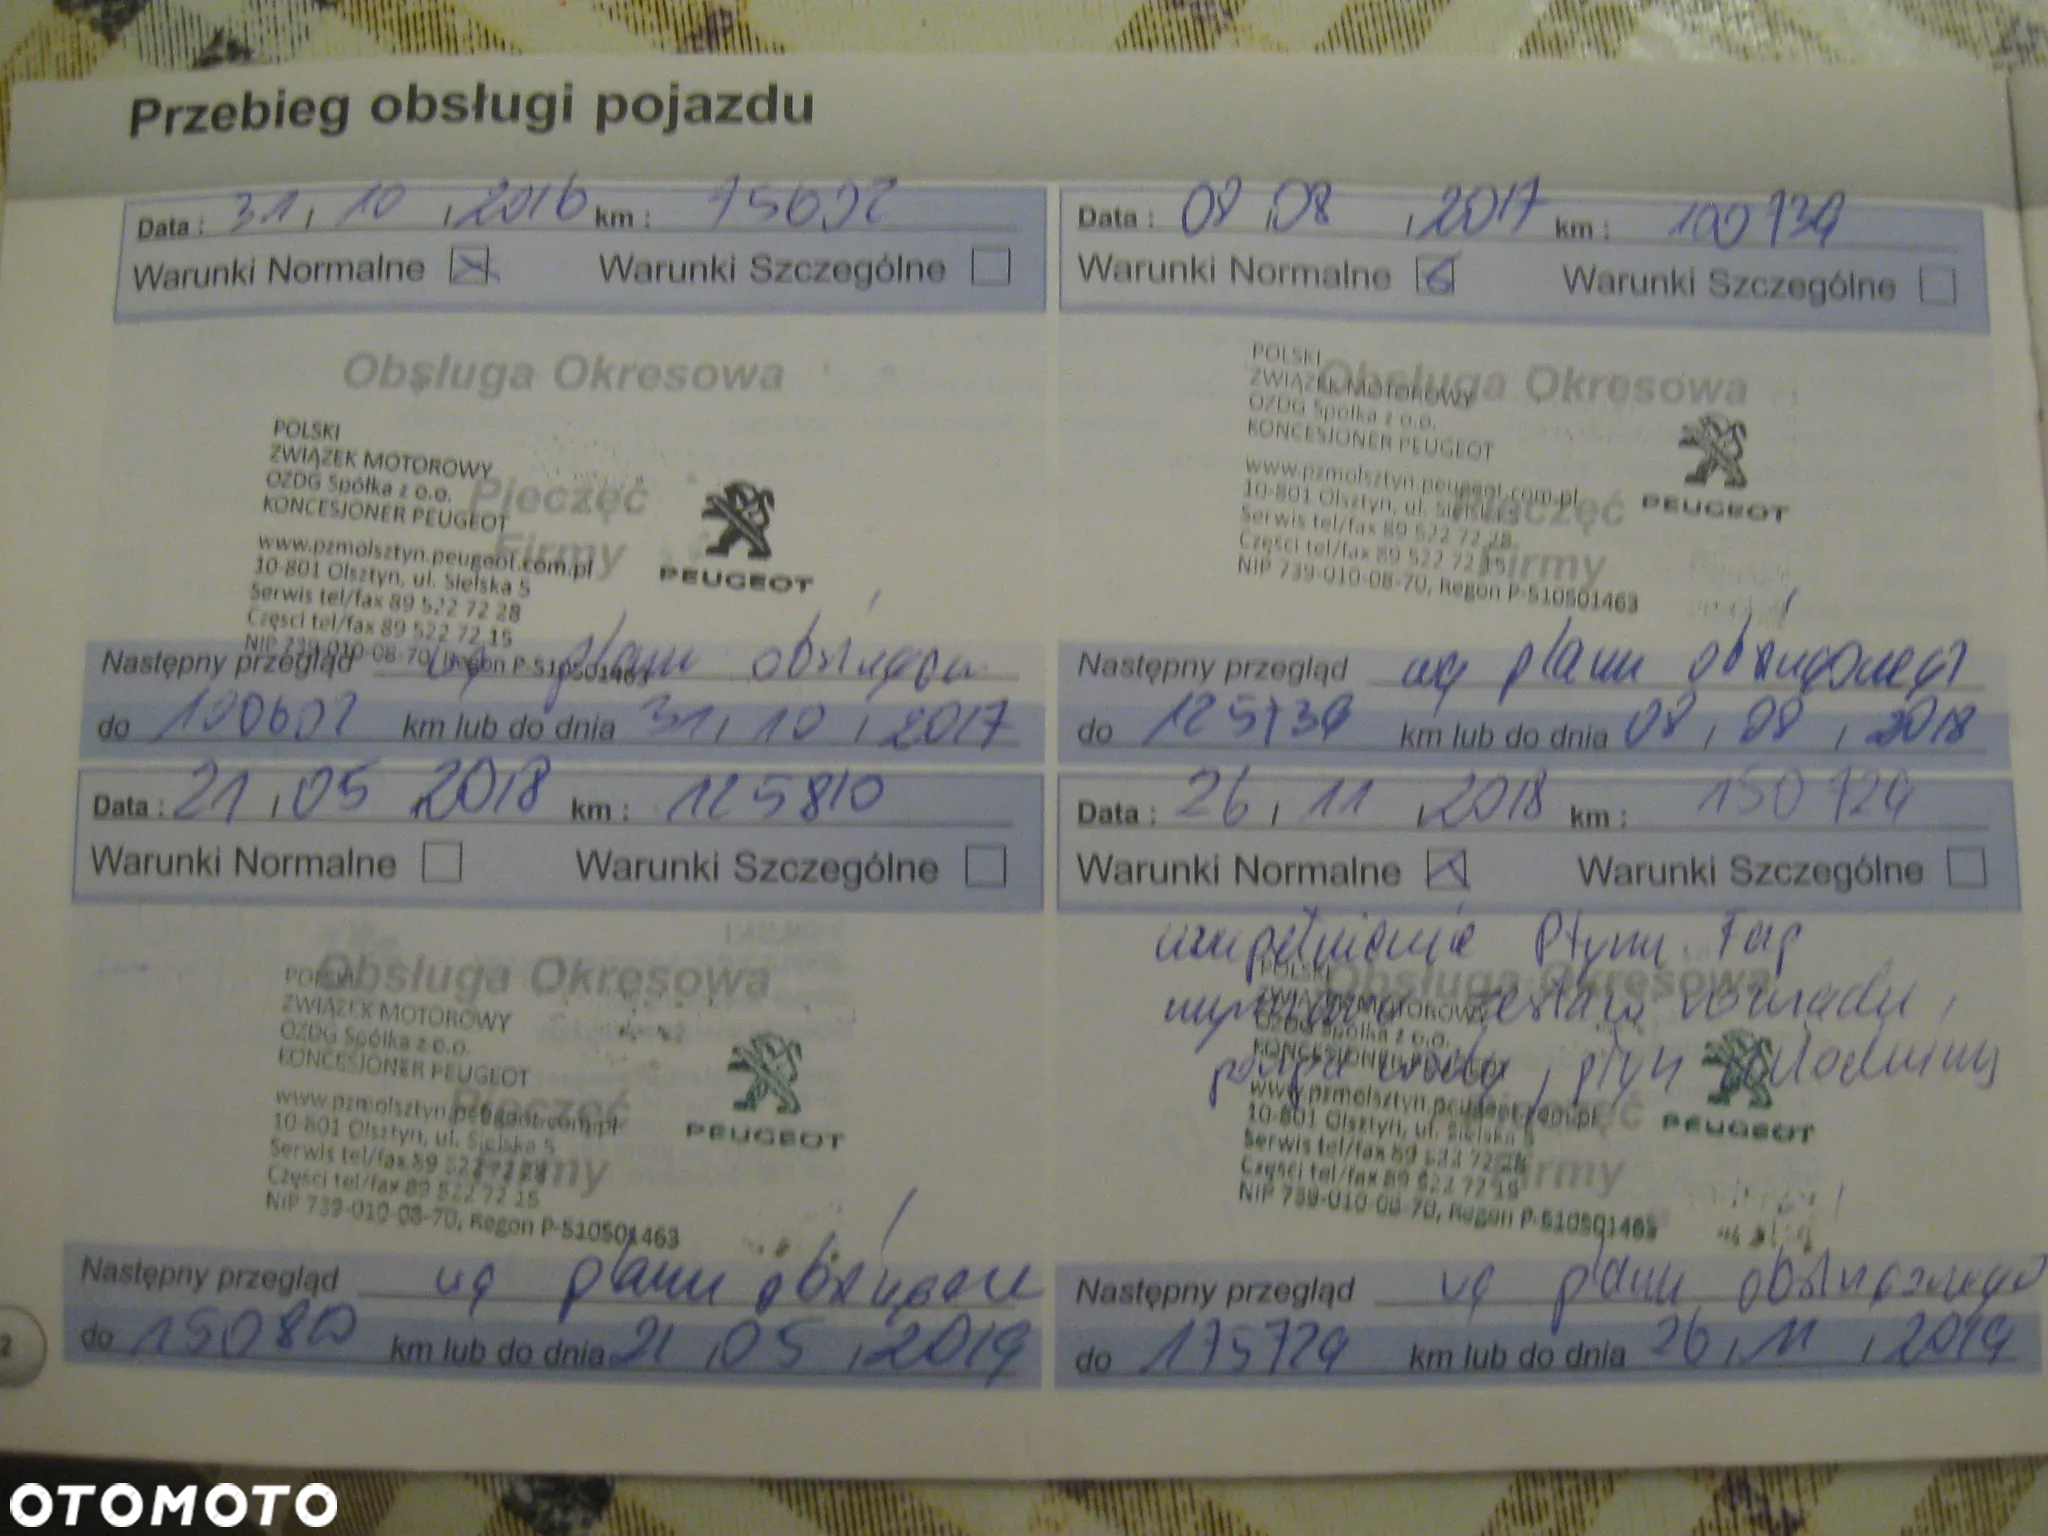 Przebieg obsługi pojazdu
Data : 31 , 10 , 2016 km : 75602
Warunki Normalne Warunki Szczególne
Obsługa Okresowa
Pieczęć
Firmy
POLSKI
ZWIĄZEK MOTOROWY
OZDG Spółka z o.o.
KONCESJONER PEUGEOT
www.pzmolsztyn.peugeot.com.pl
10-801 Olsztyn, ul. Sielska 5
Serwis tel/fax 89 522 72 28
Części tel/fax 89 522 72 15
NIP 739-010-08-70, Regon P-510501463
PEUGEOT
Następny przegląd wg planu
do 100602 km lub do dnia 31 , 10 , 2017
Data : 08 , 08 , 2017 km : 100734
Warunki Normalne Warunki Szczególne
Obsługa Okresowa
Pieczęć
Firmy
POLSKI
ZWIĄZEK MOTOROWY
OZDG Spółka z o.o.
KONCESJONER PEUGEOT
www.pzmolsztyn.peugeot.com.pl
10-801 Olsztyn, ul. Sielska 5
Serwis tel/fax 89 522 72 28
Części tel/fax 89 522 72 15
NIP 739-010-08-70, Regon P-510501463
PEUGEOT
Następny przegląd wg planu obsługowego
do 125734 km lub do dnia 08 , 08 , 2018
Data : 21 , 05 2018 km : 125810
Warunki Normalne Warunki Szczególne
Obsługa Okresowa
Pieczęć
Firmy
POLSKI
ZWIĄZEK MOTOROWY
OZDG Spółka z o.o.
KONCESJONER PEUGEOT
www.pzmolsztyn.peugeot.com.pl
10-801 Olsztyn, ul. Sielska 5
Serwis tel/fax 89 522 72 28
Części tel/fax 89 522 72 15
NIP 739-010-08-70, Regon P-510501463
PEUGEOT
Następny przegląd wg planu
do 150810 km lub do dnia 21 , 05 , 2019
Data : 26 , 11 , 2018 km : 150729
Warunki Normalne Warunki Szczególne
uzupełnienie płynu Fap
wymiana zestawu rozrządu,
pompa wody, płyn chłodniczy
Obsługa Okresowa
Pieczęć
Firmy
POLSKI
ZWIĄZEK MOTOROWY
OZDG Spółka z o.o.
KONCESJONER PEUGEOT
www.pzmolsztyn.peugeot.com.pl
10-801 Olsztyn, ul. Sielska 5
Serwis tel/fax 89 522 72 28
Części tel/fax 89 522 72 15
NIP 739-010-08-70, Regon P-510501463
PEUGEOT
Następny przegląd wg planu obsługowego
do 175729 km lub do dnia 26 , 11 , 2019
2
OTOMOTO